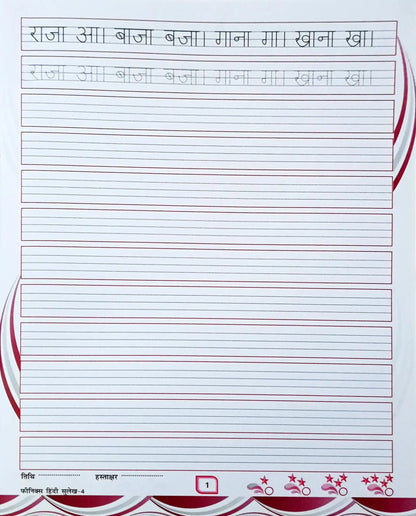 राजा आ। बाजा बजा। गाना गा। खाना खा।
राजा आ। बाजा बजा। गाना गा। खाना खा।
तिथि ................ हस्ताक्षर ................
1
फीनिक्स हिंदी सुलेख-4